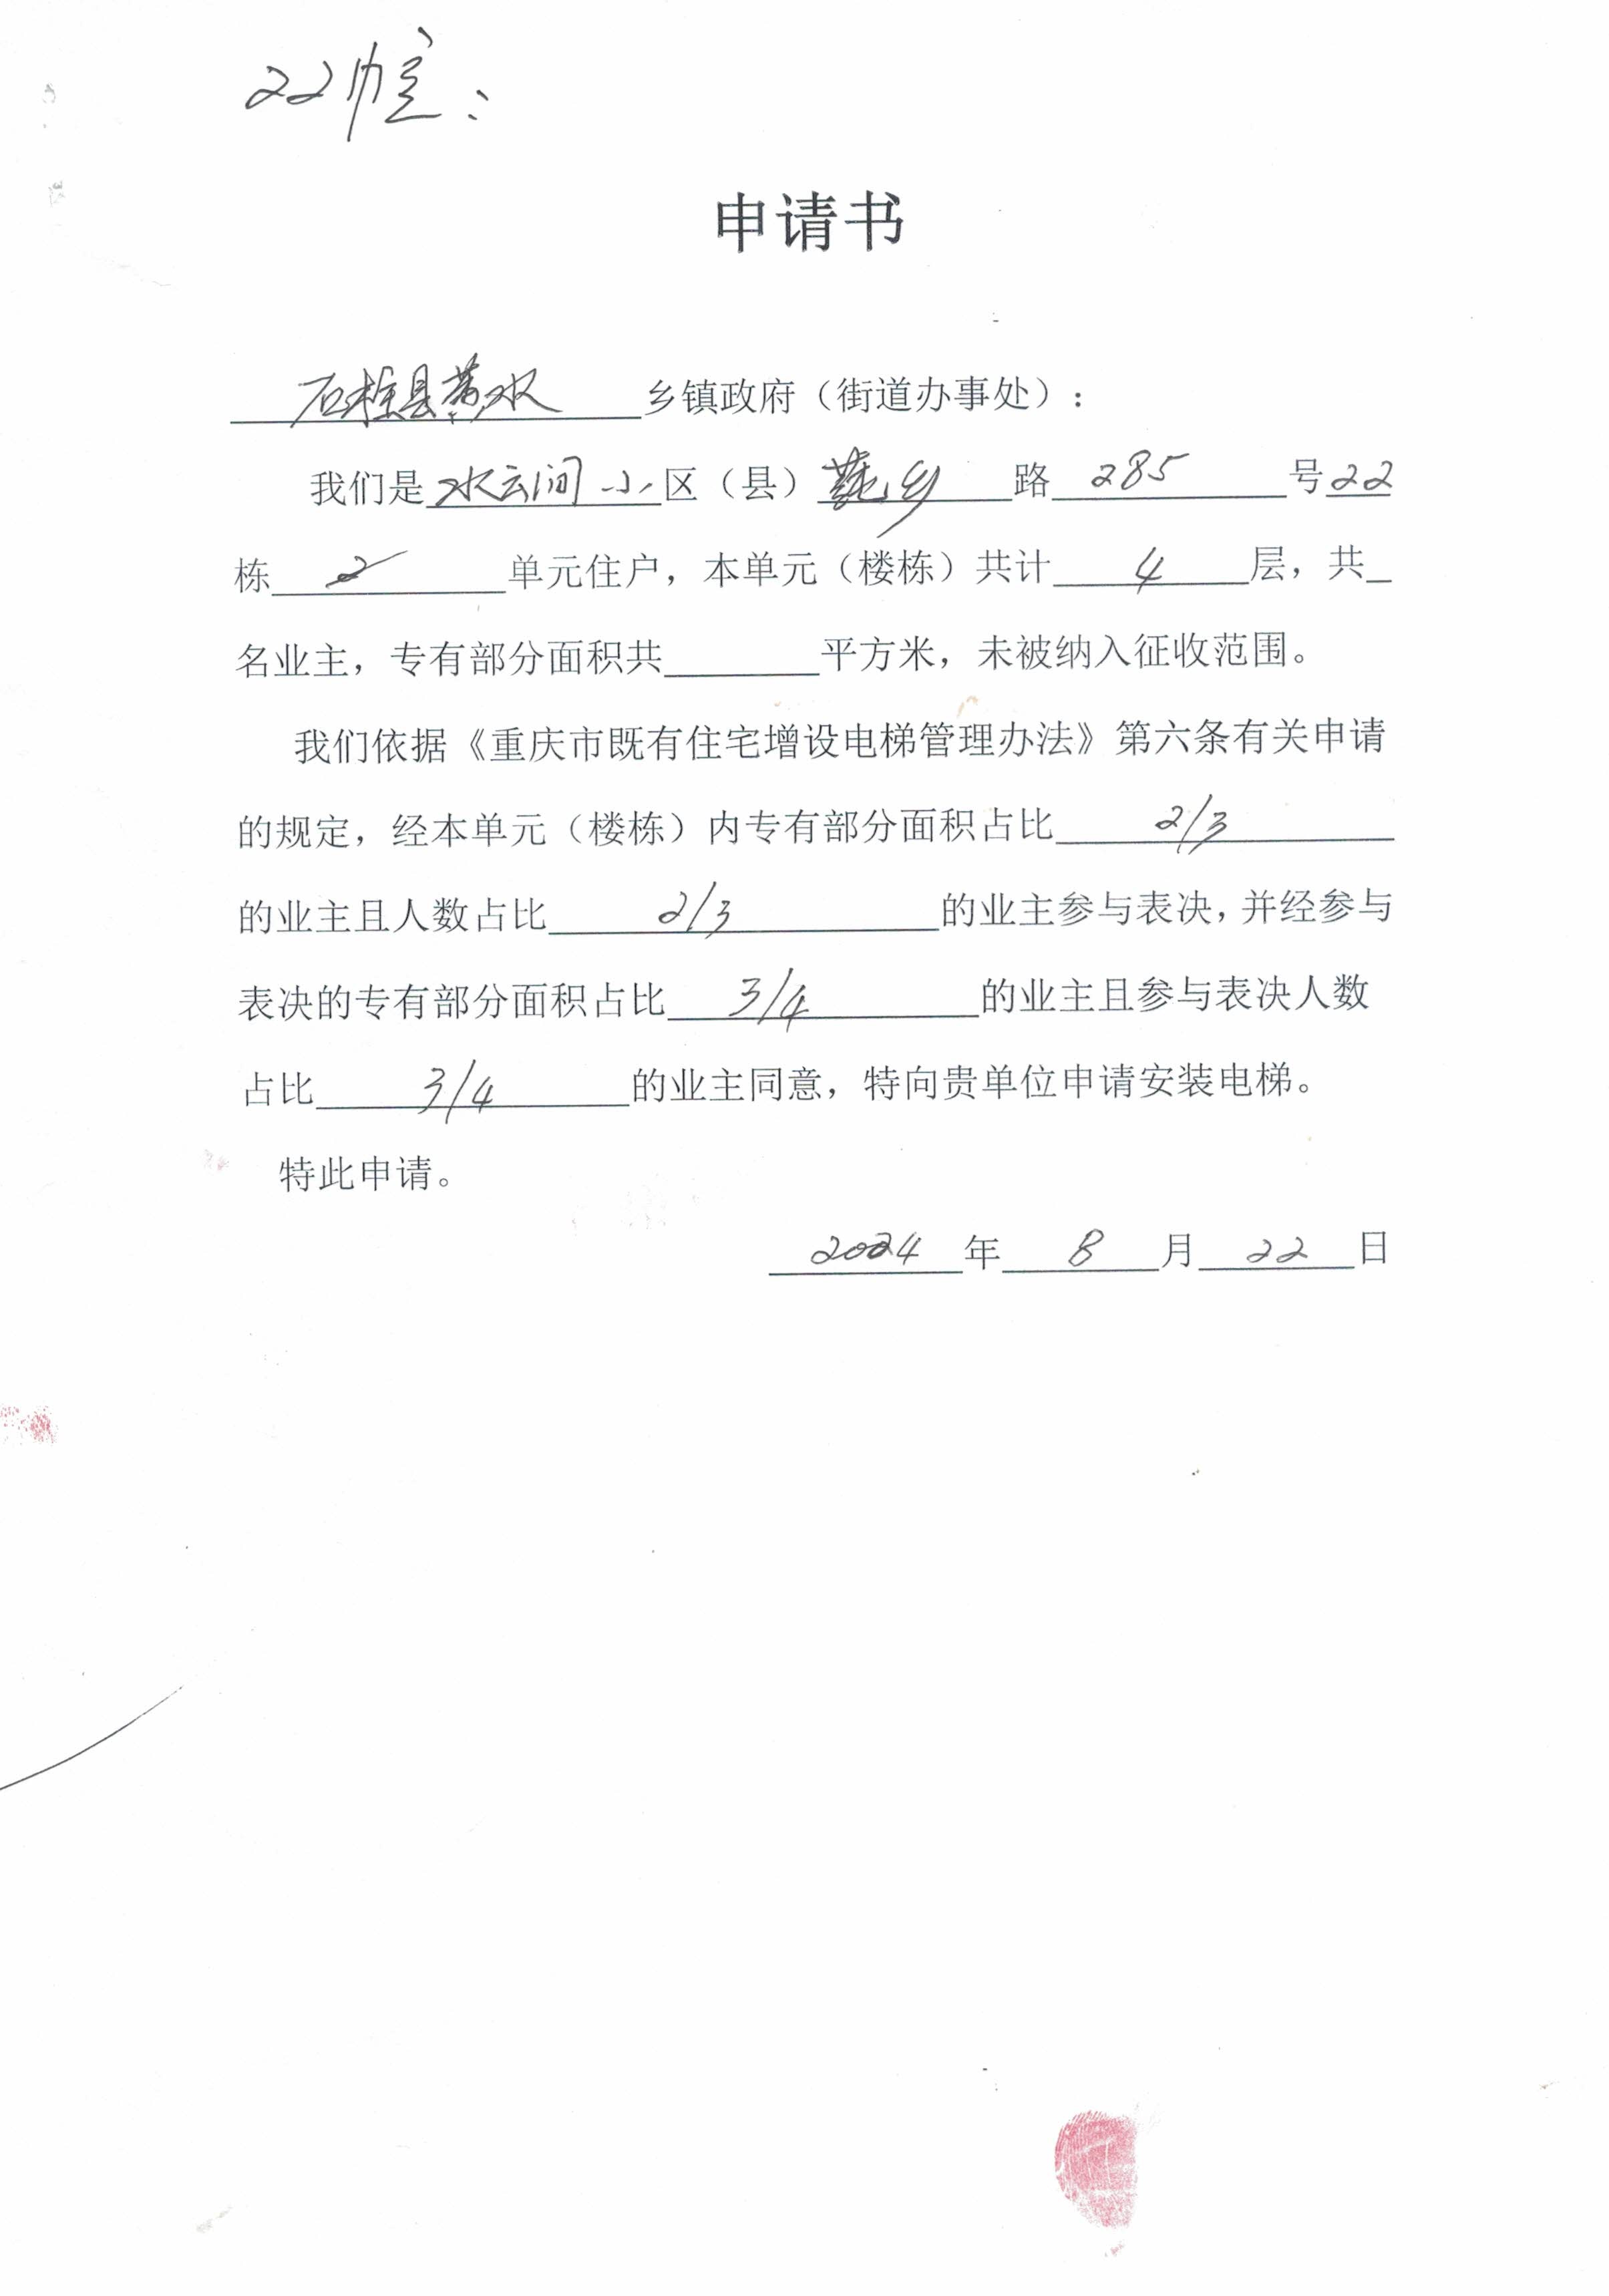 22幢：
申请书
石柱县黄水乡镇政府（街道办事处）：
我们是水云间小区（县）莼乡路285号22
栋2单元住户，本单元（楼栋）共计4层，共
名业主，专有部分面积共 平方米，未被纳入征收范围。
我们依据《重庆市既有住宅增设电梯管理办法》第六条有关申请
的规定，经本单元（楼栋）内专有部分面积占比2/3
的业主且人数占比2/3的业主参与表决，并经参与
表决的专有部分面积占比3/4的业主且参与表决人数
占比3/4的业主同意，特向贵单位申请安装电梯。
特此申请。
2024年8月22日